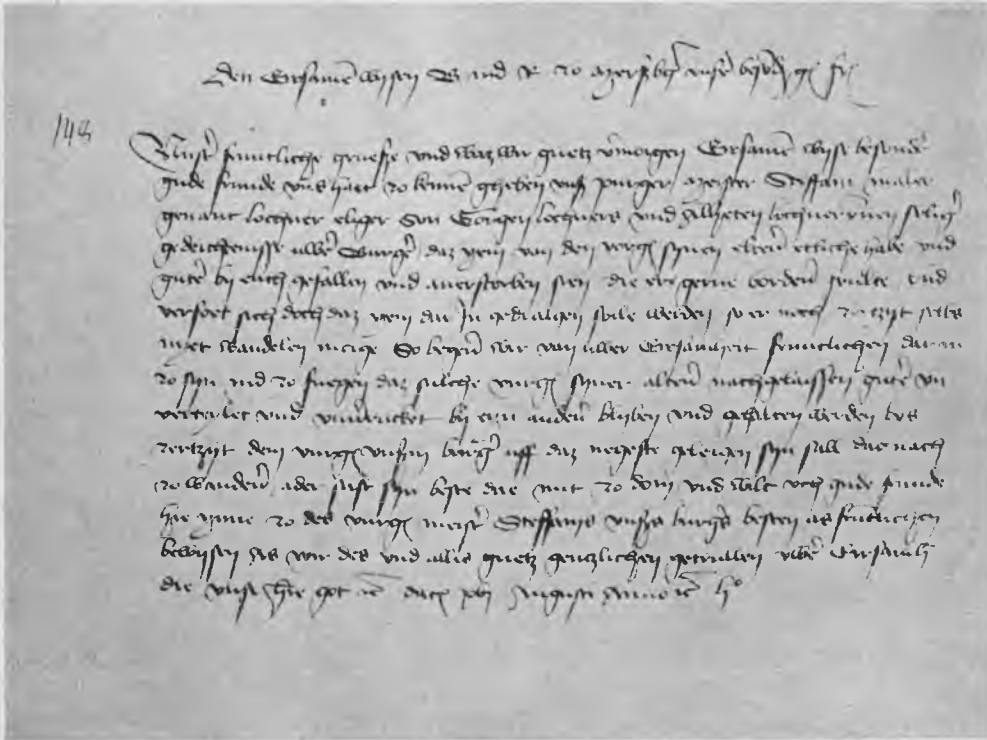 Den Ersamen wysen B ind R zo Mersb̄g unsen besūdn gͦ fr̄
148
Unsse fruntliche groesse vnd waz wir guetz v̄moigen Eirsame wyse besonder
gude frunde vns hait zo kennen gheben vnse burger meister Steffain maler
genant lochner eliger Son Georgen lochners vnd Alheten lochnerynnen seliger
gedechtenisse uwer Burger daz yem van den vurgͦ synen elteren etliche have vnd
guter by euch gefallen vnd anerstorben sien die er gerne vorderen wulte vnd
versiet sich doch daz yem dar In gedragen soile werden so er noch zertzyt selbs
nyet wandelen moige So begeren wir van uwer Eirsamheit fruntlichen dar an
zo syn ind zo fuegen daz sulche vurgͦ syner alteren nachgelaissen guter vn
verteylet vnd unverrucket by eyn anderen blyben vnd gehalten werden bys
zertzyt dem vurgͦ unssm burger uff daz neyste geleigen syn sall dar nach
zo wanderen ader sust syn beste dar mit zo doin vnd wilt uch gude frunde
hie ynne zo des vurgͦ meister Steffains unsers burgers besten as fruntlichen
bewysen as wir des vnd allis guetz gentzlichen getruwen uwer Eirsamheit
die unse here got etc datͦ xvi Augusti Anno etc lio